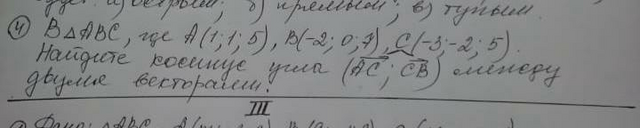 а) острым; б) прямым; в) тупым.
④ В △ABC, где A(1; 1; 5), B(-2; 0; 7), C(-3; -2; 5).
Найдите косинус угла (AC; CB) между
двумя векторами.
III